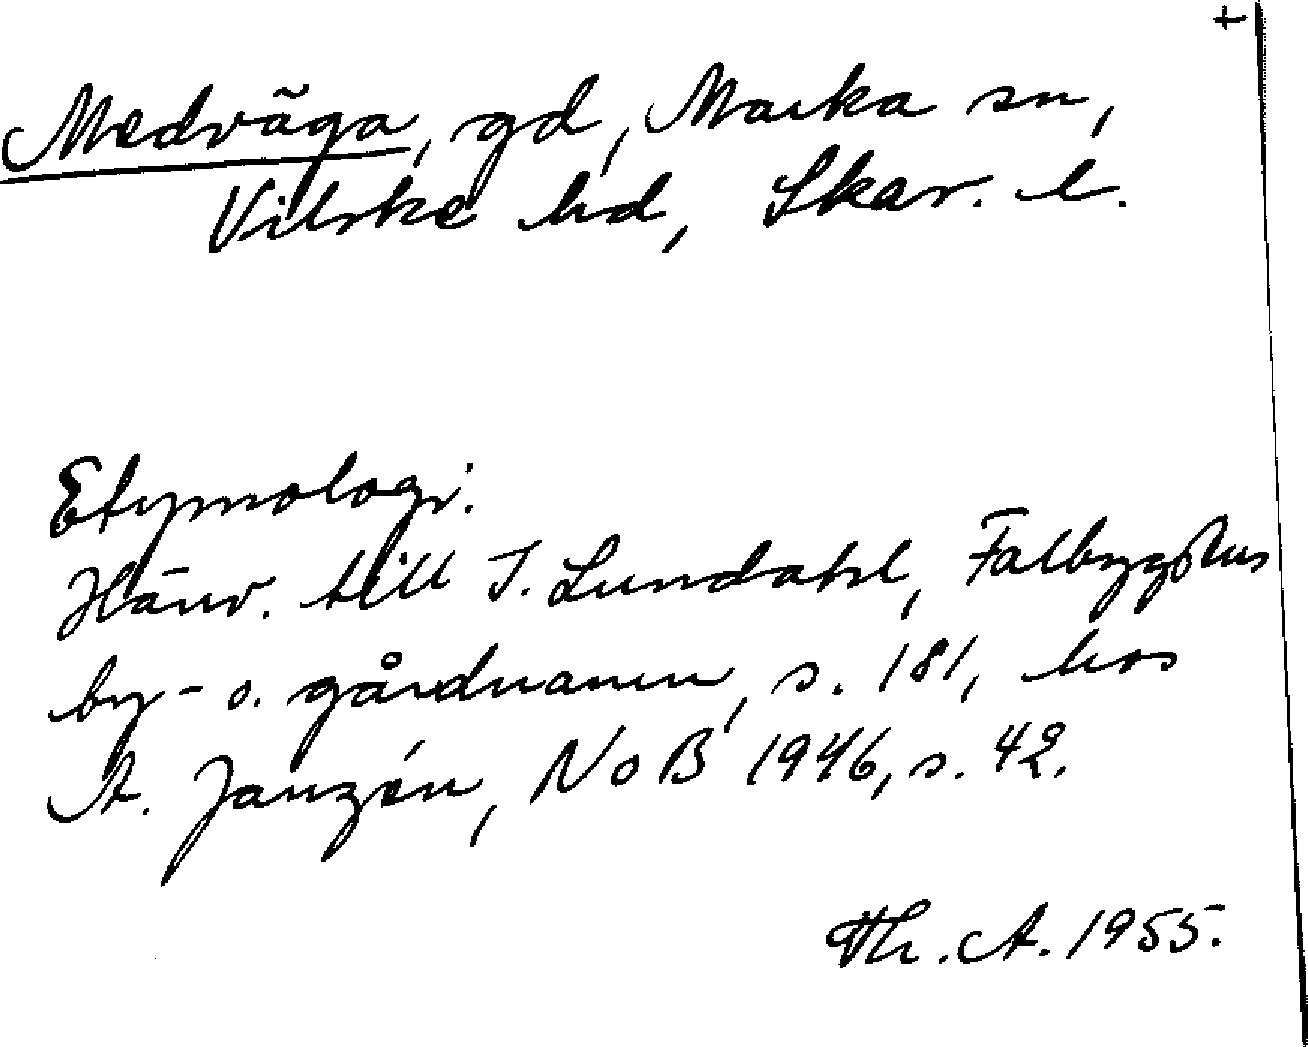 +
Medväga, gd, Marka sn,
Vilske hd, Skar. l.
Etymologi.
Hänv. till I. Lundahl, Falbygdens
by- o. gårdnamn, s. 181, hos
A. Janzén, NoB 1946, s. 42.
Th. A. 1955.